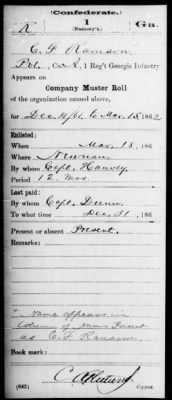 (Confederate.)
R 1 Ga.
(Ramsey's.)
C. F. Ramson
Pvt., Co. A, 1 Reg't Georgia Infantry
Appears on
Company Muster Roll
of the organization named above,
for Dec 31/61 to Mar 15, 1862
Enlisted:
When Mar. 18, 186
Where Newnan
By whom Capt. Hanvey
Period 12 Mos.
Last paid:
By whom Capt.
To what time Dec. 31, 186
Present or absent Present.
Remarks:
Name appears in
column of names Present
as C. F. Ransom
Book mark:
(642) Copyist.